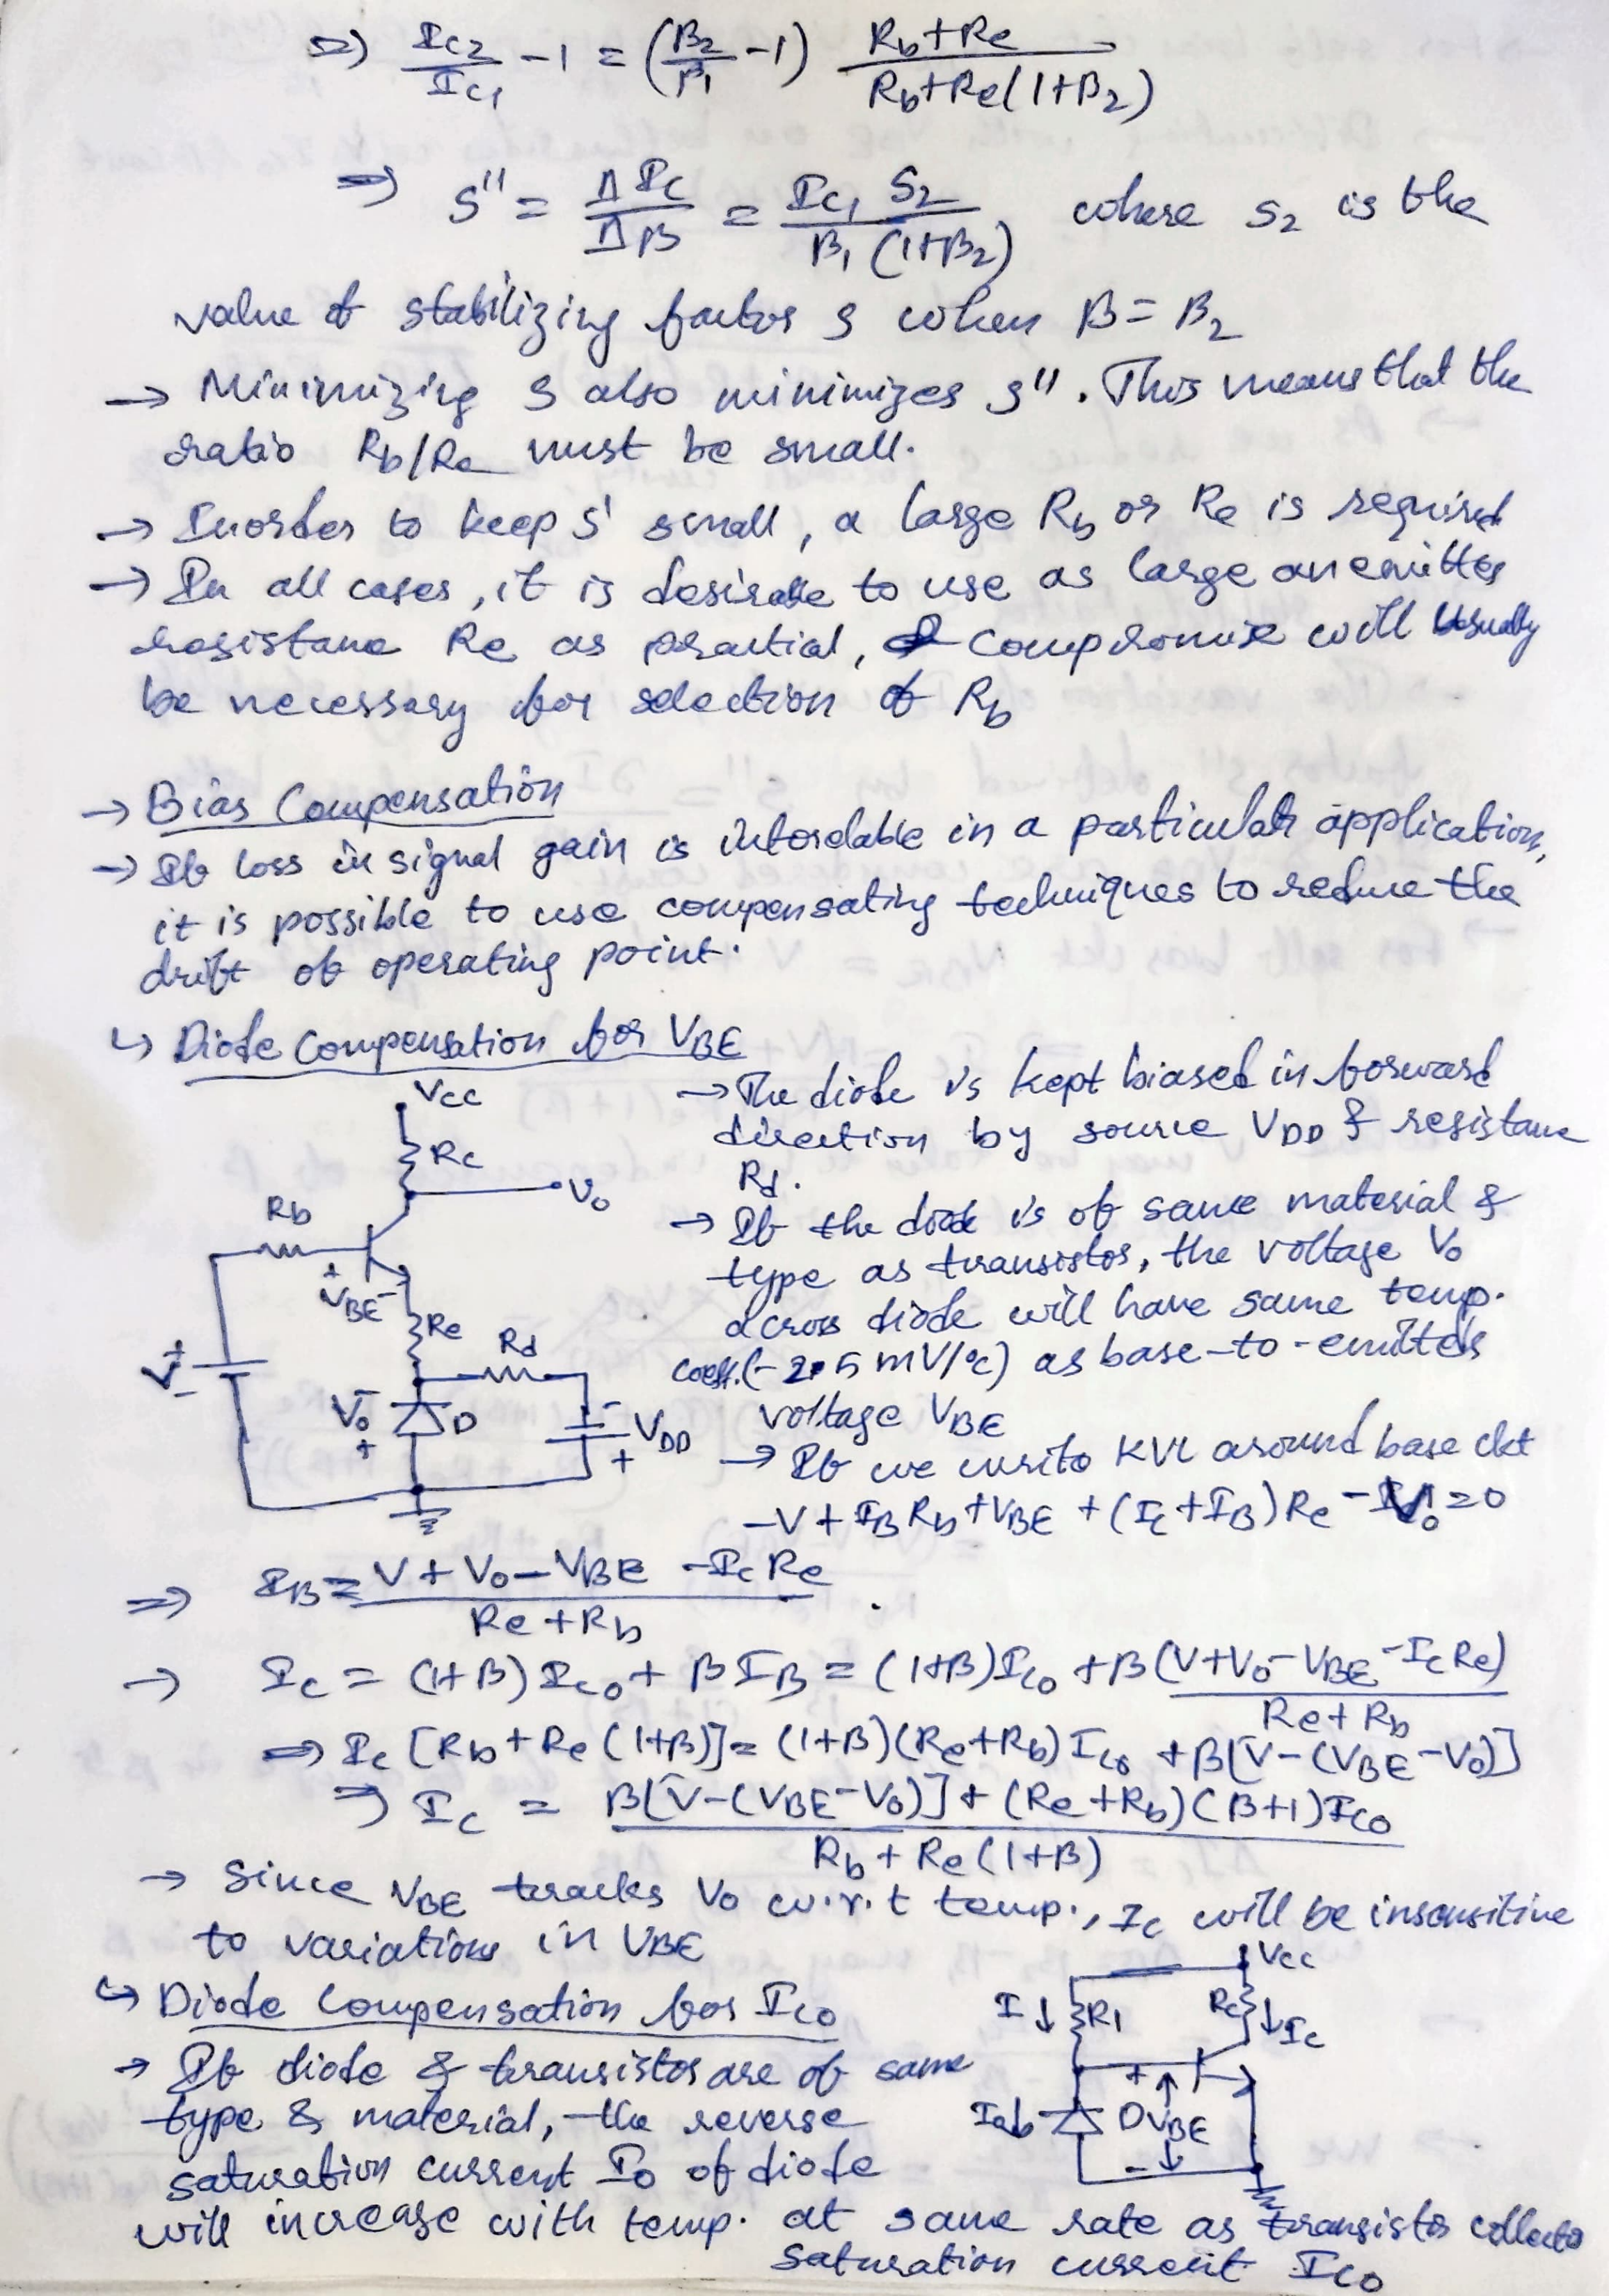 ⇒ Ic2/Ic1 - 1 = (β2/β1 - 1) (Rb+Re)/(Rb+Re(1+β2))
⇒ S'' = ΔIc/Δβ = Ic1 S2/β1(1+β2) where S2 is the
value of stabilizing factor S when β = β2
→ Minimizing S also minimizes S''. This means that the
ratio Rb/Re must be small.
→ Inorder to keep S' small, a large Rb or Re is required
→ In all cases, it is desirable to use as large an emitter
resistance Re as practical, compromise will usually
be necessary for selection of Rb
→ Bias Compensation
→ If loss in signal gain is intorelable in a particular application,
it is possible to use compensating techniques to reduce the
drift of operating point.
↳ Diode Compensation for VBE
Vcc
Rc
Vo
Rb
+ VBE -
Re
Rd
+ V -
- Vo +
D
- VDD +
→ The diode is kept biased in forward
direction by source VDD & resistance
Rd.
→ If the diode is of same material &
type as transistor, the voltage Vo
across diode will have same temp.
coeff.(-2.5 mV/°c) as base-to-emitter
voltage VBE
→ If we write KVL around base ckt
-V + IB Rb + VBE + (Ic + IB) Re - Vo = 0
⇒ IB = (V + Vo - VBE - Ic Re)/(Re + Rb)
→ Ic = (1+β) Ico + β IB = (1+β) Ico + β (V+Vo-VBE-Ic Re)/(Re+Rb)
⇒ Ic [Rb + Re (1+β)] = (1+β)(Re+Rb) Ico + β[V-(VBE-Vo)]
⇒ Ic = (β[V-(VBE-Vo)] + (Re+Rb)(β+1)Ico)/(Rb + Re(1+β))
→ Since VBE tracks Vo w.r.t temp., Ic will be insensitive
to variations in VBE
↳ Diode Compensation for Ico
→ If diode & transistor are of same
type & material, the reverse
saturation current Io of diode
will increase with temp. at same rate as transistor collecto
saturation current Ico
Vcc
I ↓ R1
Rc ↓ Ic
Io ↓
D
+ VBE -